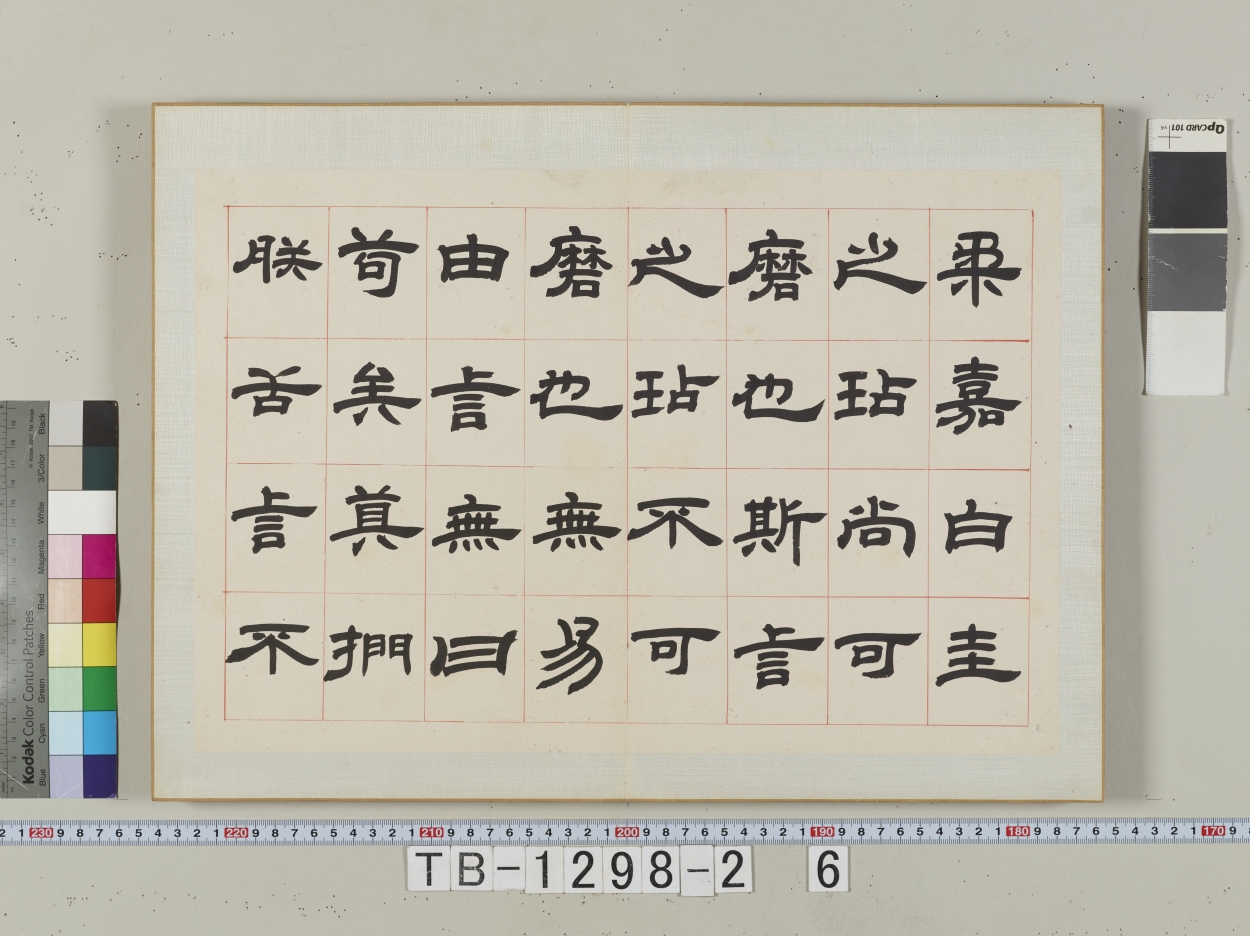 柔嘉白圭
之玷尚可
磨也斯言
之玷不可
磨也無易
由言無曰
苟矣莫捫
朕舌言不
QPCARD 101
Kodak Color Control Patches
Blue
Cyan
Green
Yellow
Red
Magenta
White
3/Color
Black
230 220 210 200 190 180 170
TB-1298-2 6